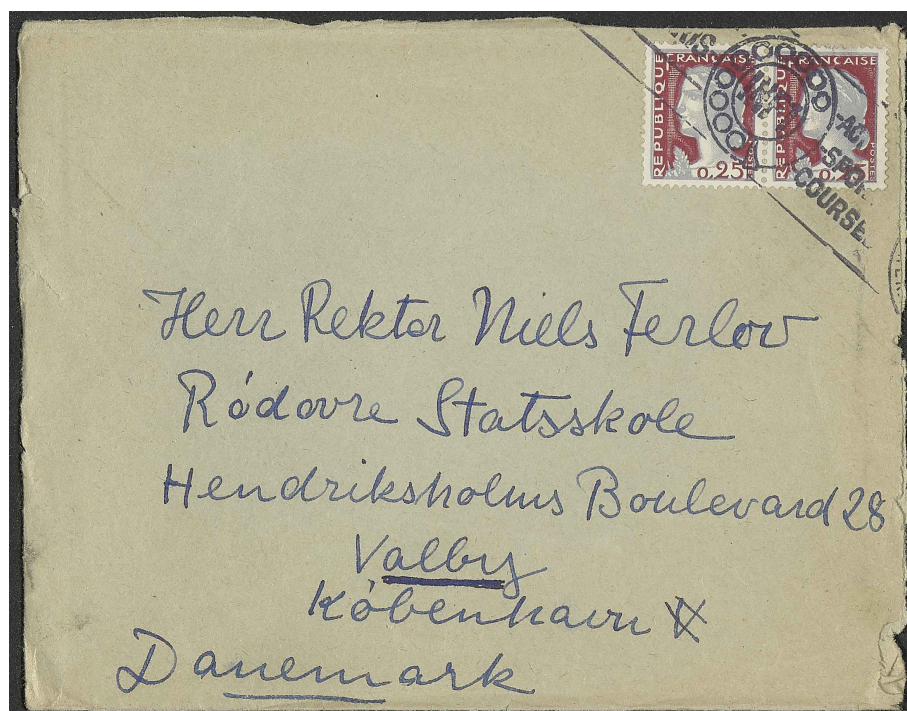 RÉPUBLIQUE FRANÇAISE
0,25
POSTES
RÉPUBLIQUE FRANÇAISE
0,25
POSTES
COURSE
Herr Rektor Niels Ferlov
Ródovre Statsskole
Hendriksholms Boulevard 28
Valby
Kóbenhavn
Danemark